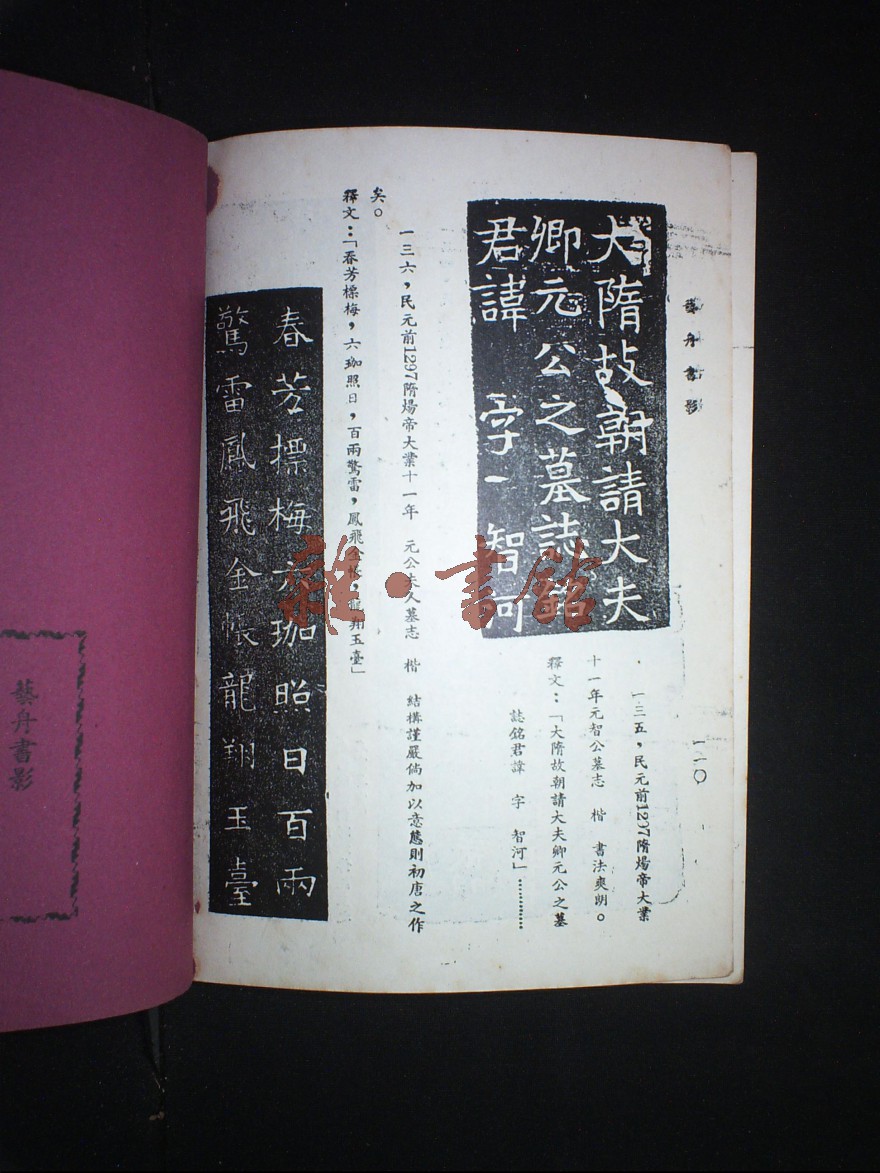 藝舟書影
一一〇
大隋故朝請大夫
卿元公之墓誌銘
君諱 字一智河
一三五,民元前1297隋煬帝大業
十一年元智公墓志 楷 書法爽朗。
釋文:「大隋故朝請大夫卿元公之墓
誌銘君諱 字 智河」…………
一三六,民元前1297隋煬帝大業十一年 元公夫人墓志 楷 結構謹嚴倘加以意態則初唐之作
矣。
釋文:「春芳標梅,六珈照日,百兩驚雷,鳳飛金帳,龍翔玉臺」
春芳摽梅六珈昭日百兩
驚雷鳳飛金帳龍翔玉臺
藝舟書影
雜·書館